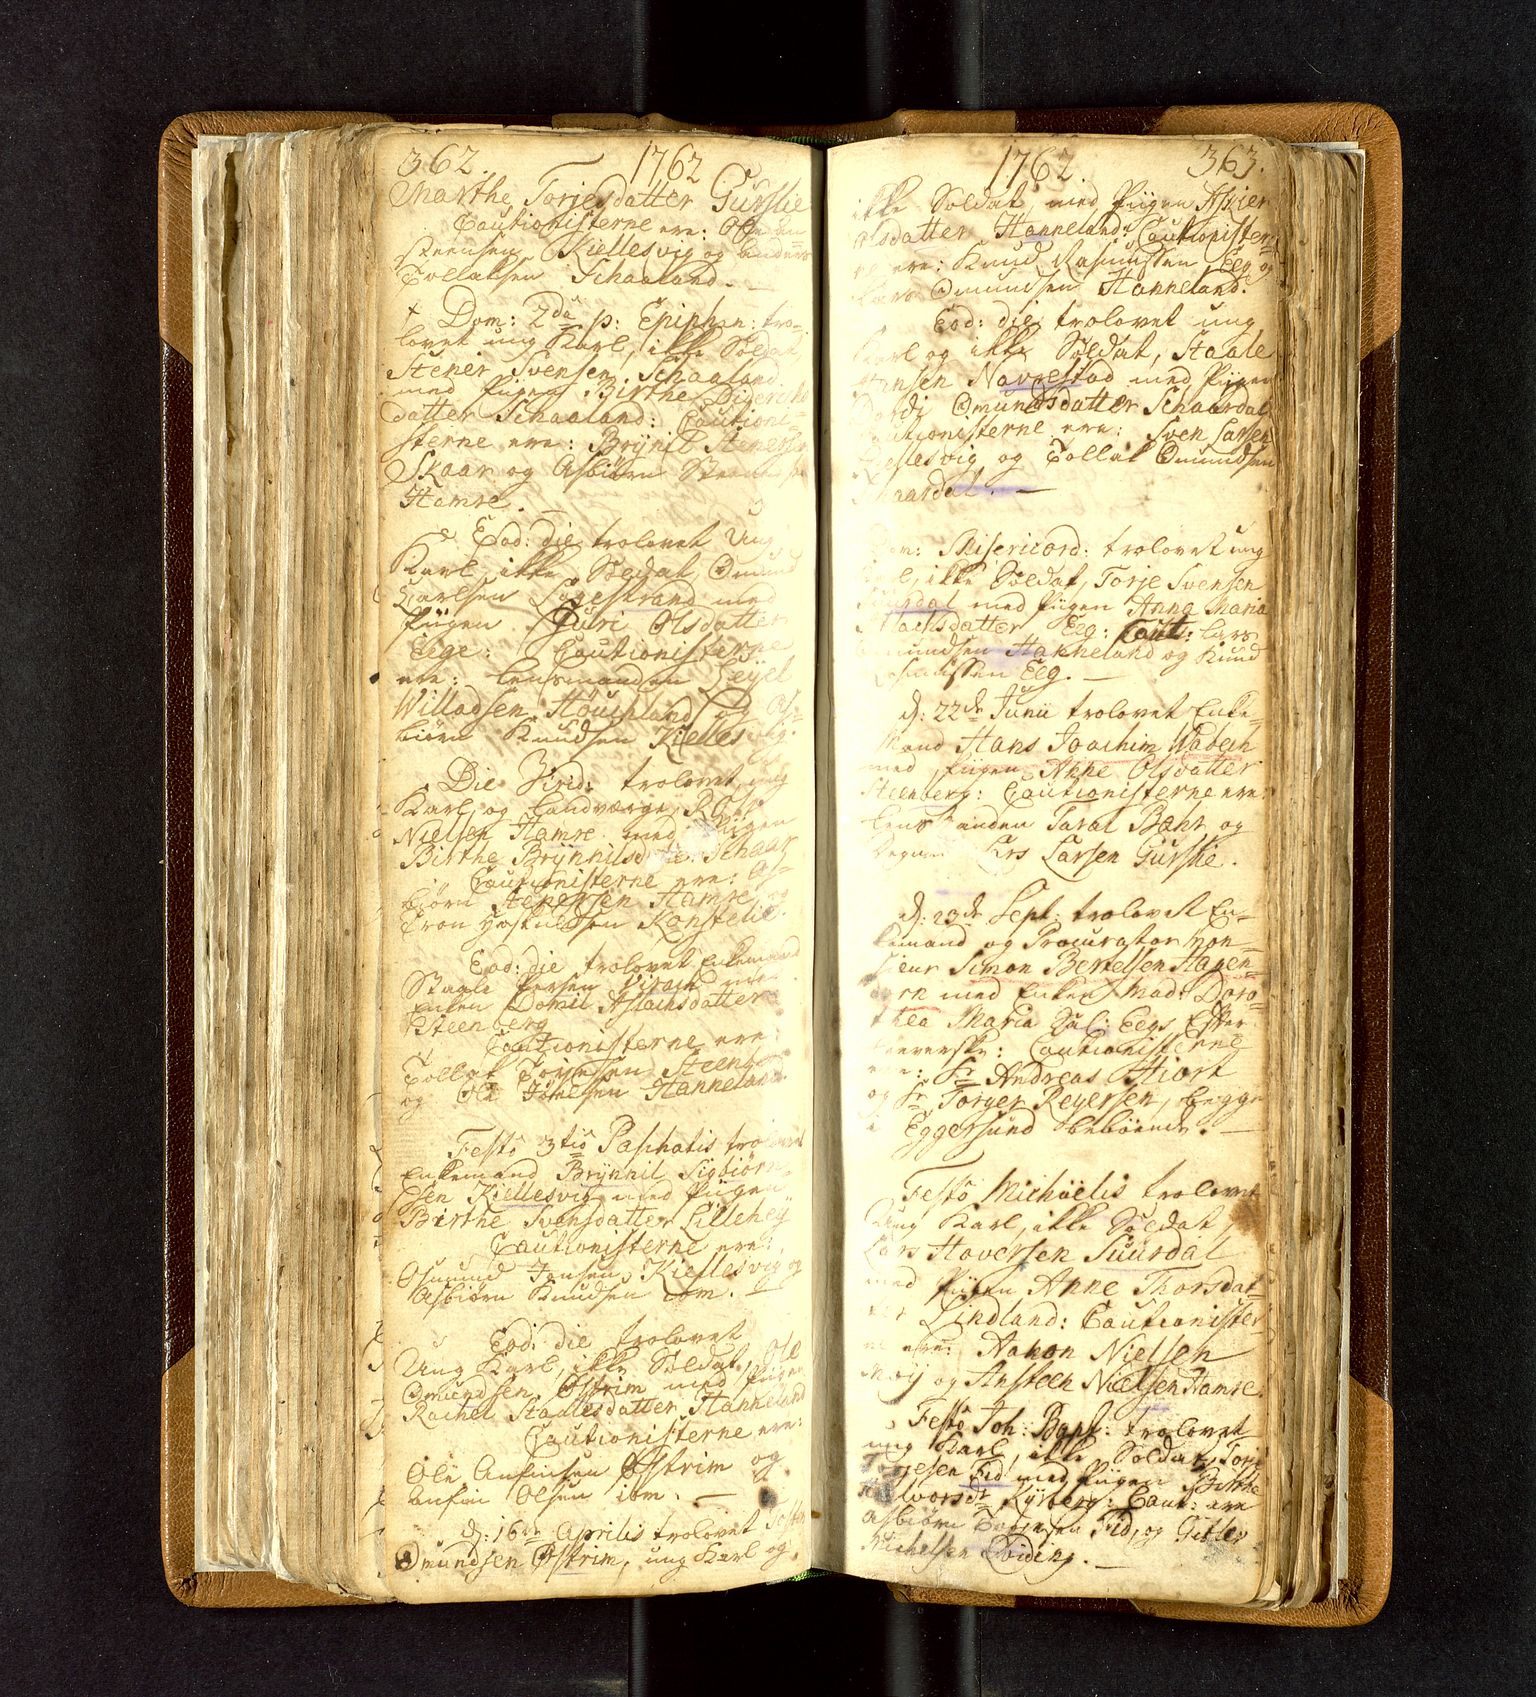 362. 1762
Marthe Torjesdatter Gurslie
Cautionisterne ere: Ole An
steensen Kiellesvig og Anders
Tollaksen Schaaland. —
Dom: 2da p: Epiphan: tro-
lovet ung Karl, ikke Soldat,
Stener Svensen Schaaland
med Pigen Birthe
datter Schaaland: Cautioni-
sterne ere: Brÿnil Stenersen
Skaar og Asbiörn
Hamre. —
Eod: die trolovet Ung
Karl, ikke Soldat, Omund
Carlsen Logestrand med
Pigen Guri Olsdatter
Eege: Cautionisterne
ere: Lensmanden Leÿel
Willadsen Höuinland og As-
biörn Knudsen Kiellesvig.
Die Virid: trolovet ung
Karl og Landværge
Nielsen Hamre med Pigen
Birthe Brÿnnilsdatter Schaar
Cautionisterne ere: As-
biörn Stenersen Hamre og
Tron Konstelie.
Eod: die trolovet Enkemand
Staale Persen Virach med
Enken Domil Aslachsdatter
Steenberg
Cautionisterne ere:
Tollak Torjesen Steenberg
og Ole Jonelsen Hanneland.
Festô 3tiô Paschatis trolovet
Enkemand Brÿnnil Sigbiörn-
sen Kiellesvig med Pigen
Birthe Svensdatter Lilleheÿ
Cautionisterne ere:
Omund Jensen Kiellesvig og
Asbiörn Knudsen ibm. —
Eod: die trolovet
Ung Karl, ikke Soldat, Ole
Omundsen Østrim med Pigen
Rachel Staalesdatter Hanneland
Cautionisterne ere:
Ole Anfinsen Østrim og
Anfin Olsen ibm. —
d: 16de Aprilis trolovet
Omundsen Østrim, ung Karl og
1762. 363.
ikke Soldat med Pigen Asier
Olsdatter Hanneland: Cautionister-
ne ere: Knud Rasmussen Eeg og
Lars Omundsen Hanneland.
Eod: die trolovet ung
Karl og ikke Soldat, Staale
Hansen Navrestad med Pigen
Omundsdatter Schaardal
Cautionisterne ere: Sven Larsen
Kiellesvig og Tollak Omundsen
Schaardal. —
Dom: Misericord: trolovet ung
Karl, ikke Soldat, Torje Svensen
Suurdal med Pigen Anna Maria
Aslachsdatter Eeg: Caut: Lars
Omundsen Hanneland og Knud
Rasmussen Eeg. —
d: 22de Junii trolovet Enke-
Mand Hans Joachim Wadech
med Pigen Anne Olsdatter
Steenberg: Cautionisterne ere:
Lensmanden Taral Bæhr og
Lars Larsen Gurslie.
d: 29de Sept: trolovet En-
kemand og Procurator Mon-
sieur Simon Bertelsen Hagen-
med Enken Mad: Doro-
thea Maria Sal: Eegs Efter-
leverske: Cautionisterne
ere: Sr Andreas Hiort
og Sr Torger Reÿersen, begge
i Eggersund beboende. —
Festô Michäelis trolovet
Ung Karl, ikke Soldat,
Lars Stoversen Suurdal
med Pigen Anne Thorsdat-
ter Lindland: Cautionister-
ne ere: Aanon Nielsen
Möÿ og Ansteen Nielsen Hamre.
Festô Joh: Bapt: trolovet
ung Karl, ikke Soldat, Torje
Torjesen Eid med Pigen Birthe
Halvorsdr Kÿrberg: Caut: ere
Asbiörn Torjesen Eid, og Gitler
Michelsen Qviding. —